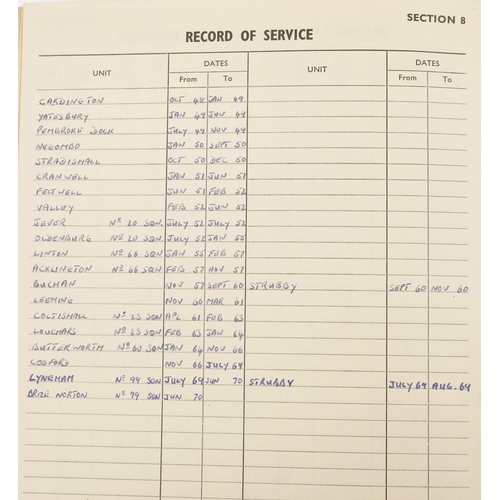 SECTION 8
RECORD OF SERVICE
UNIT DATES UNIT DATES
From To From To
CARDINGTON OCT 48 JAN 49
YATESBURY JAN 49 JUN 49
PEMBROKE DOCK JULY 49 NOV 49
NEGOMBO JAN 50 SEPT 50
STRADISHALL OCT 50 DEC 50
CRANWELL JAN 51 JUN 51
FELTWELL JUN 51 FEB 52
VALLEY FEB 52 JUN 52
JEVER Nº 20 SQN. JULY 52 JULY 52
OLDENBURG Nº 20 SQN. JULY 52 JAN 55
LINTON Nº 66 SQN JAN 55 FEB 57
ACKLINGTON Nº 66 SQN FEB 57 NOV 57
BUCHAN NOV 57 SEPT 60 STRUBBY SEPT 60 NOV 60
LEEMING NOV 60 MAR 61
COLTISHALL Nº 23 SQN APL 61 FEB 63
LEUCHARS Nº 23 SQN FEB 63 JAN 64
BUTTERWORTH Nº 60 SQN JAN 64 NOV 66
COSFORD NOV 66 JULY 69
LYNEHAM Nº 99 SQN JULY 69 JUN 70 STRUBBY JULY 69 AUG. 69
BRIZE NORTON Nº 99 SQN JUN 70